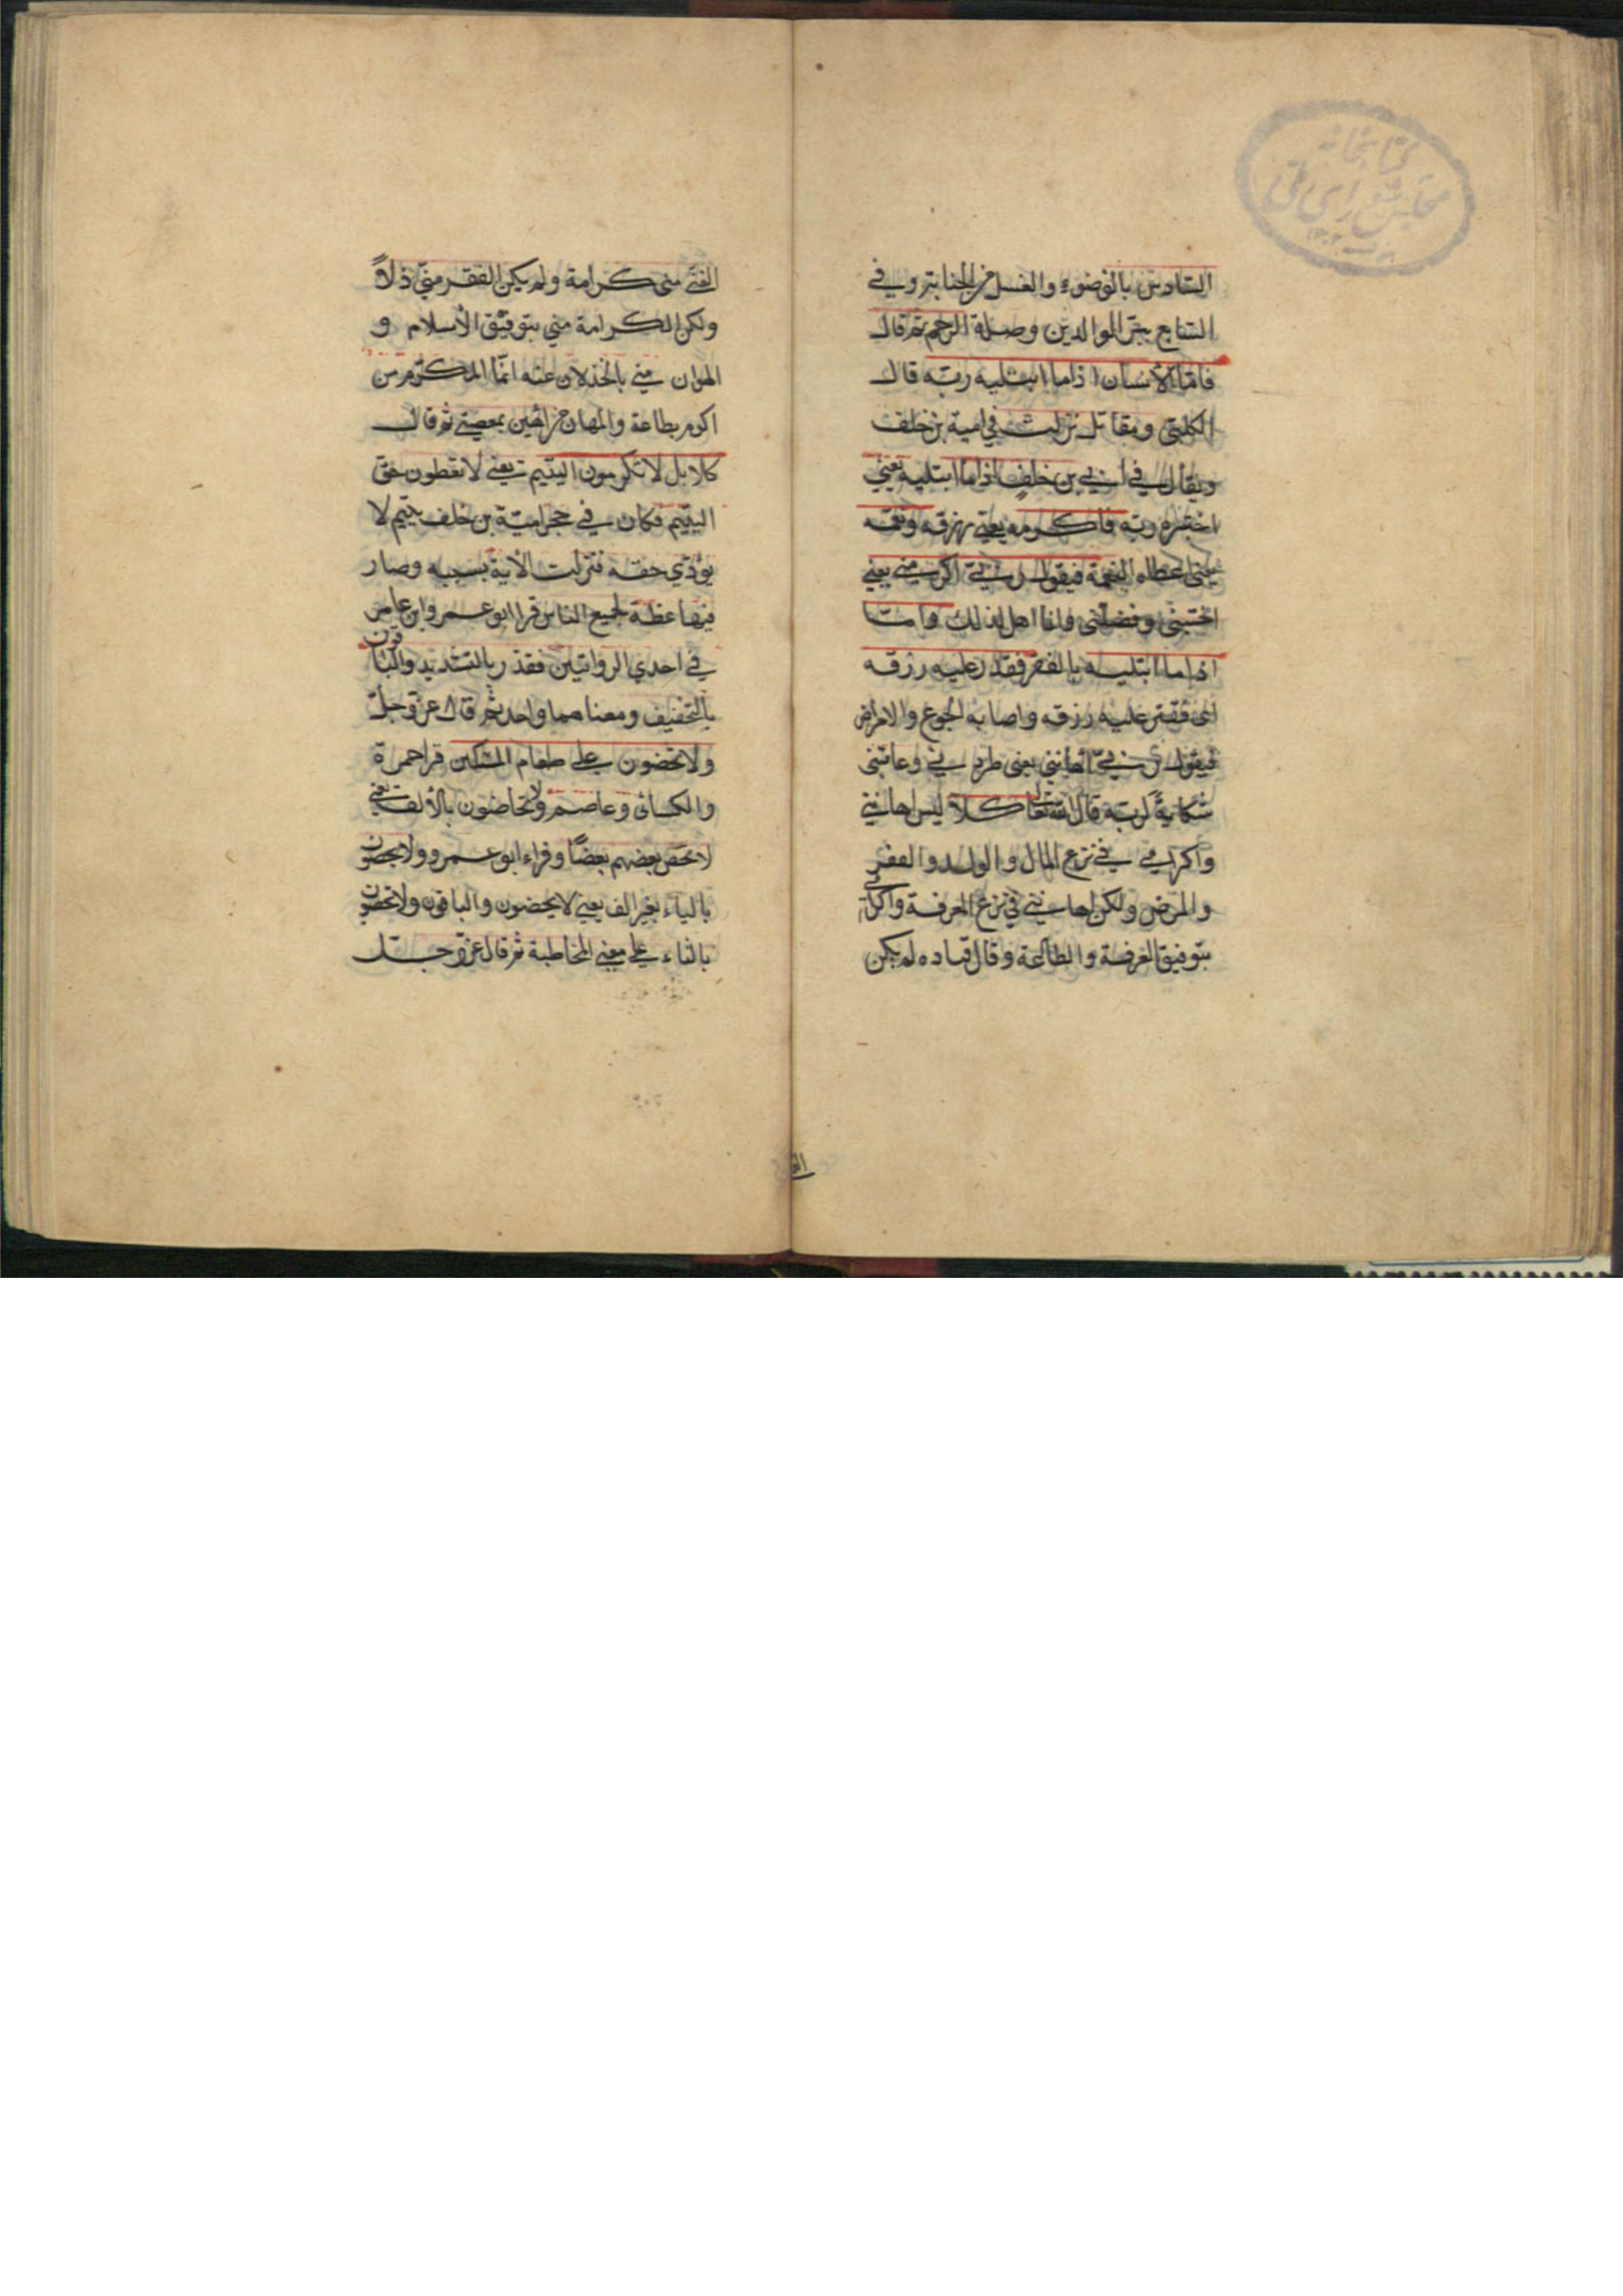 السادس بالوضوء والغسل من الجنابة وفي
السابع ببر الوالدين وصلة الرحم ثم قال
فاما الأنسان اذا ما ابتليه ربه قال
الكلبي ومقاتل نزلت في امية بن خلف
ويقال في ابي بن خلف اذا ما ابتليه يعني
اختبره ربه فاكرمه يعني رزقه ونعمه
يعني اعطاه النعمة فيقول ربي اكرمني يعني
اجتبني وفضلني وانا اهل لذلك واما
اذا ما ابتليه بالفقر فقدر عليه رزقه
اى فقتر عليه رزقه واصابه الجوع والامراض
فيقول ربي أهانني يعني طردني وعاقبني
شكايةً لربه قال الله تعالى كلا ليس اهانتي
واكرامي في نزع المال والولد والفقر
والمرض ولكن اهانتي في نزع المعرفة واكرامي
بتوفيق المعرفة والطاعة وقال قتاده لم يكن
الغنى
الغنى مني كرامة ولم يكن الفقر منّي ذلاً
ولكن الكرامة مني بتوفيق الأسلام و
الهوان مني بالخذلان عنه انّما المكرّم من
اكرم بطاعة والمهان من اهين بمعصيتي ثم قال
كلا بل لا تكرمون اليتيم يعني لا تعطون حق
اليتيم فكان في حجر اميّة بن خلف يتيم لا
يؤدّي حقه فنزلت الأية بسببه وصار
فيها عظة لجميع الناس قرا ابو عمرو ابن عامر
في احدي الروايتين فقدّر بالتشديد والباقون
بالتخفيف ومعناهما واحد ثم قال عزّ وجلّ
ولا تحضون على طعام المسكين قرا حمزة
والكسائى وعاصم ولا تحاضون بالألف يعني
لا يحض بعضهم بعضًا وقراء ابو عمرو ولا يحضون
بالياء بغير الف يعني لا يحضون والباقون ولا تحضون
بالتاء على معنى المخاطبة ثم قال عزّ وجلّ
كتابخانه
مجلس شورای ملی